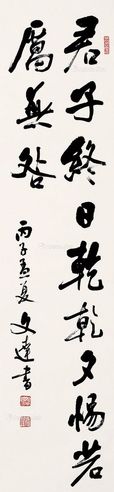 君子終日乾乾夕惕若
厲無咎
丙子孟夏文達書